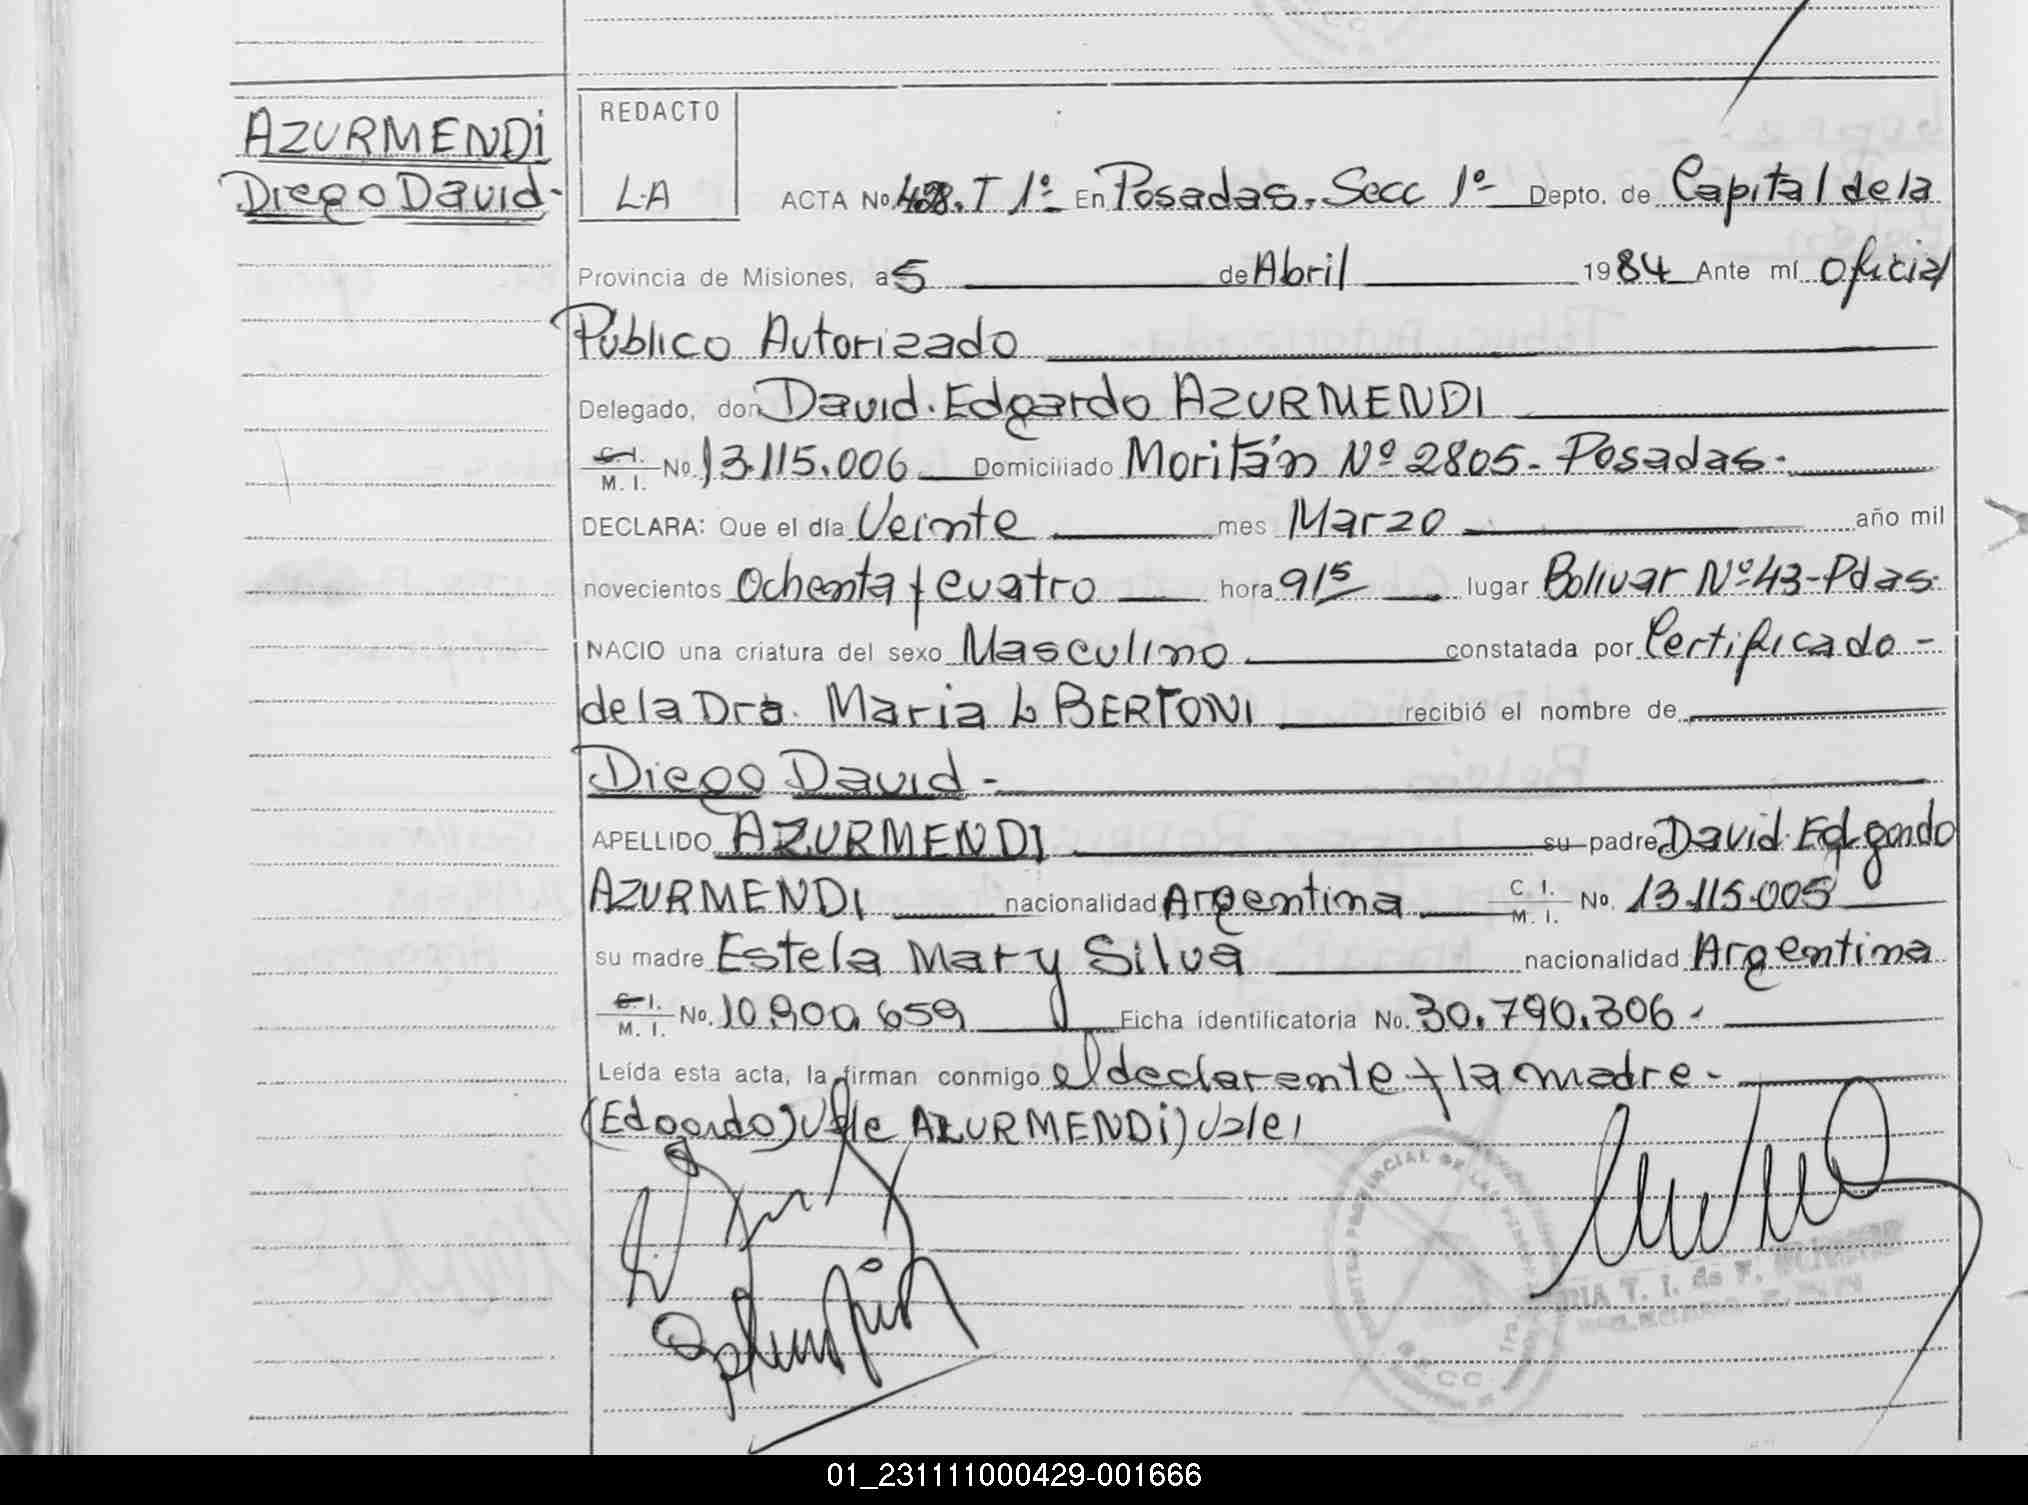 AZURMENDi
Diego David-
REDACTO
L.A
ACTA No. 428. T 1º En Posadas. Secc 1º Depto. de Capital de la
Provincia de Misiones, a 5 de Abril 1984 Ante mí oficial
Público Autorizado
Delegado, don David. Edgardo AZURMENDI
C. I.
M. I. No. 13.115.006 Domiciliado Moritán Nº 2805- Posadas.
DECLARA: Que el día Veinte mes Marzo año mil
novecientos Ochenta y cuatro hora 9 15 lugar Bolivar Nº 43-Pdas.
NACIO una criatura del sexo Masculino constatada por Certificado -
de la Dra. Maria L BERTONI recibió el nombre de
Diego David -
APELLIDO AZURMENDI su padre David Edgardo
AZURMENDI nacionalidad Argentina C. I.
M. I. No. 13.115.005
su madre Estela Mary Silva nacionalidad Argentina
C. I.
M. I. No. 10.900.659 Ficha identificatoria No. 30.790.306-
Leída esta acta, la firman conmigo el declarente y la madre-
(Edgardo) Vale AZURMENDi) Vale
01_231111000429-001666